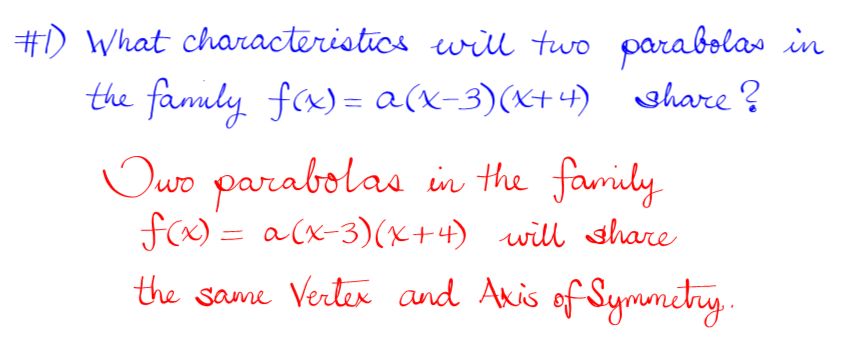 #1) What characteristics will two parabolas in
the family f(x) = a(x-3)(x+4) share?
Two parabolas in the family
f(x) = a(x-3)(x+4) will share
the same Vertex and Axis of Symmetry.